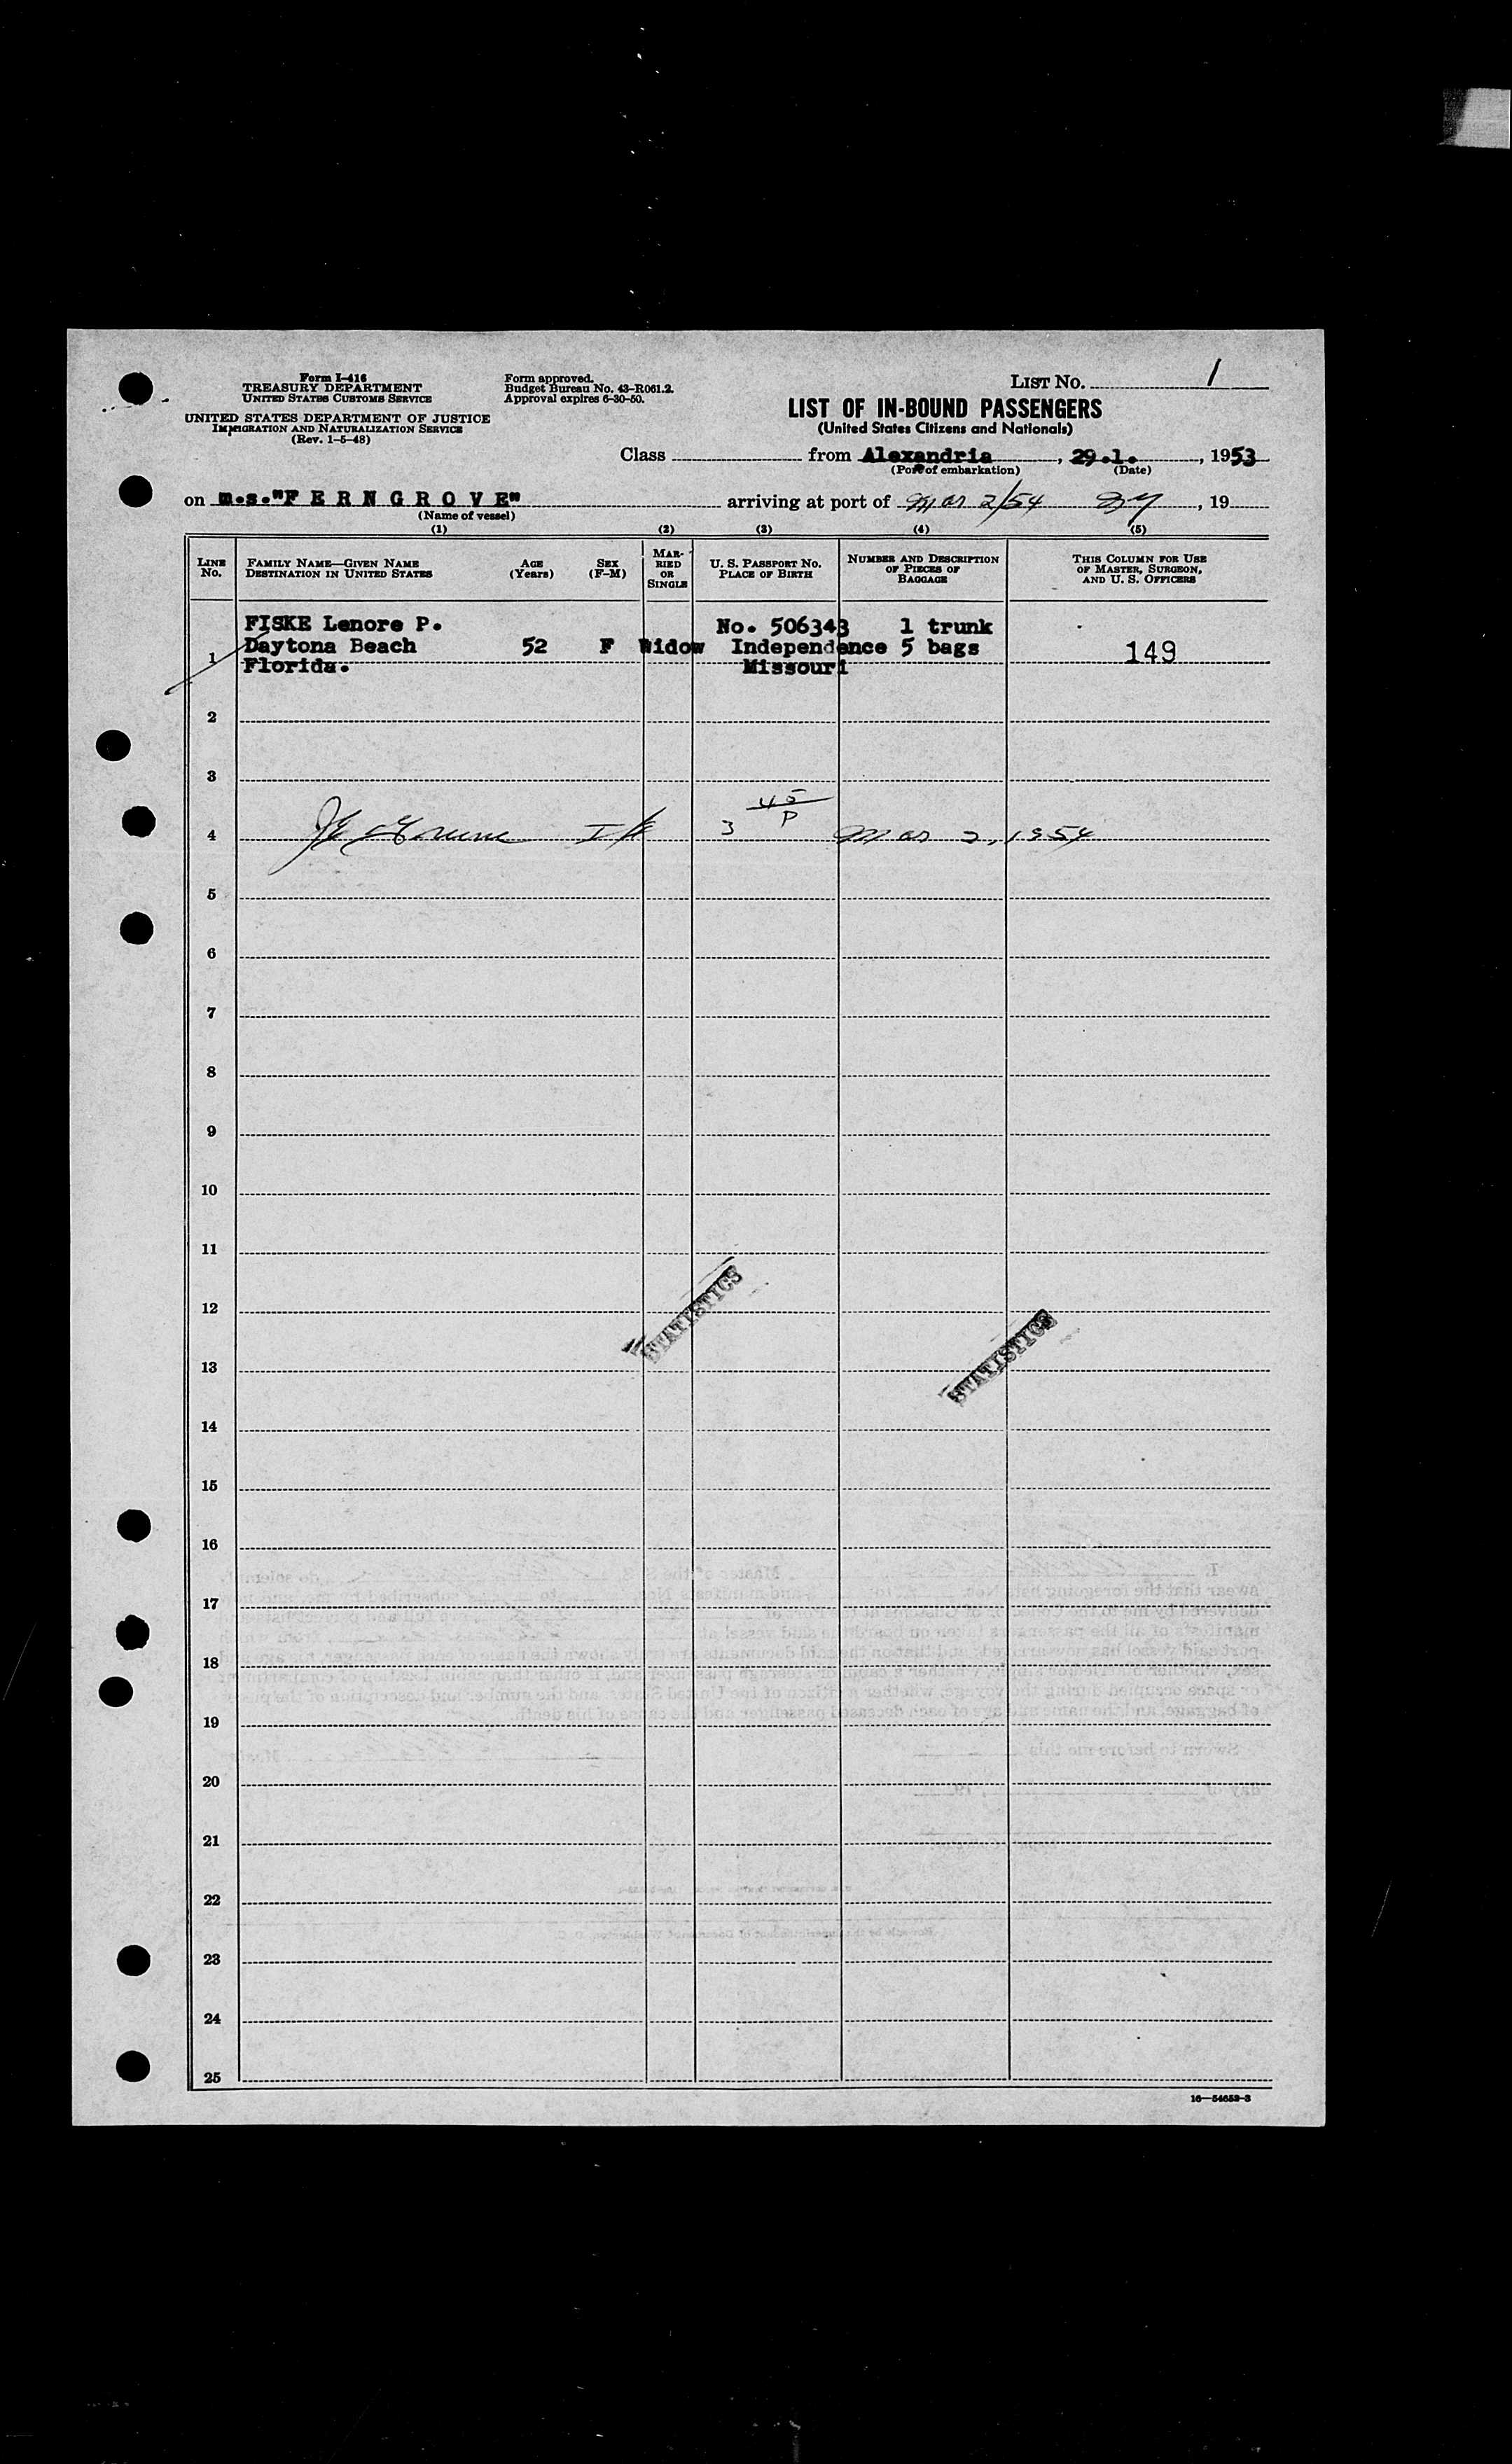 Form I-416
TREASURY DEPARTMENT
UNITED STATES CUSTOMS SERVICE
UNITED STATES DEPARTMENT OF JUSTICE
IMMIGRATION AND NATURALIZATION SERVICE
(Rev. 1-5-48)
Form approved.
Budget Bureau No. 43-R061.2.
Approval expires 6-30-50.
LIST NO. 1
LIST OF IN-BOUND PASSENGERS
(United States Citizens and Nationals)
Class from Alexandria, 29.1., 1953
(Port of embarkation) (Date)
on m.s."F E R N G R O V E" arriving at port of Mar 2/54 , 19
(Name of vessel)
(1) (2) (3) (4) (5)
LINE NO.
FAMILY NAME—GIVEN NAME
DESTINATION IN UNITED STATES
AGE
(Years)
SEX
(F-M)
MARRIED OR SINGLE
U. S. PASSPORT NO.
PLACE OF BIRTH
NUMBER AND DESCRIPTION
OF PIECES OF
BAGGAGE
THIS COLUMN FOR USE
OF MASTER, SURGEON,
AND U. S. OFFICERS
FISKE Lenore P. No. 506343 1 trunk
1 Daytona Beach 52 F Widow Independence 5 bags 149
Florida. Missouri
2
3
45
4 3 P Mar 2, 1954
5
6
7
8
9
10
11
12 STATISTICS
13 STATISTICS
14
15
16
17
18
19
20
21
22
23
24
25
16—54652-3